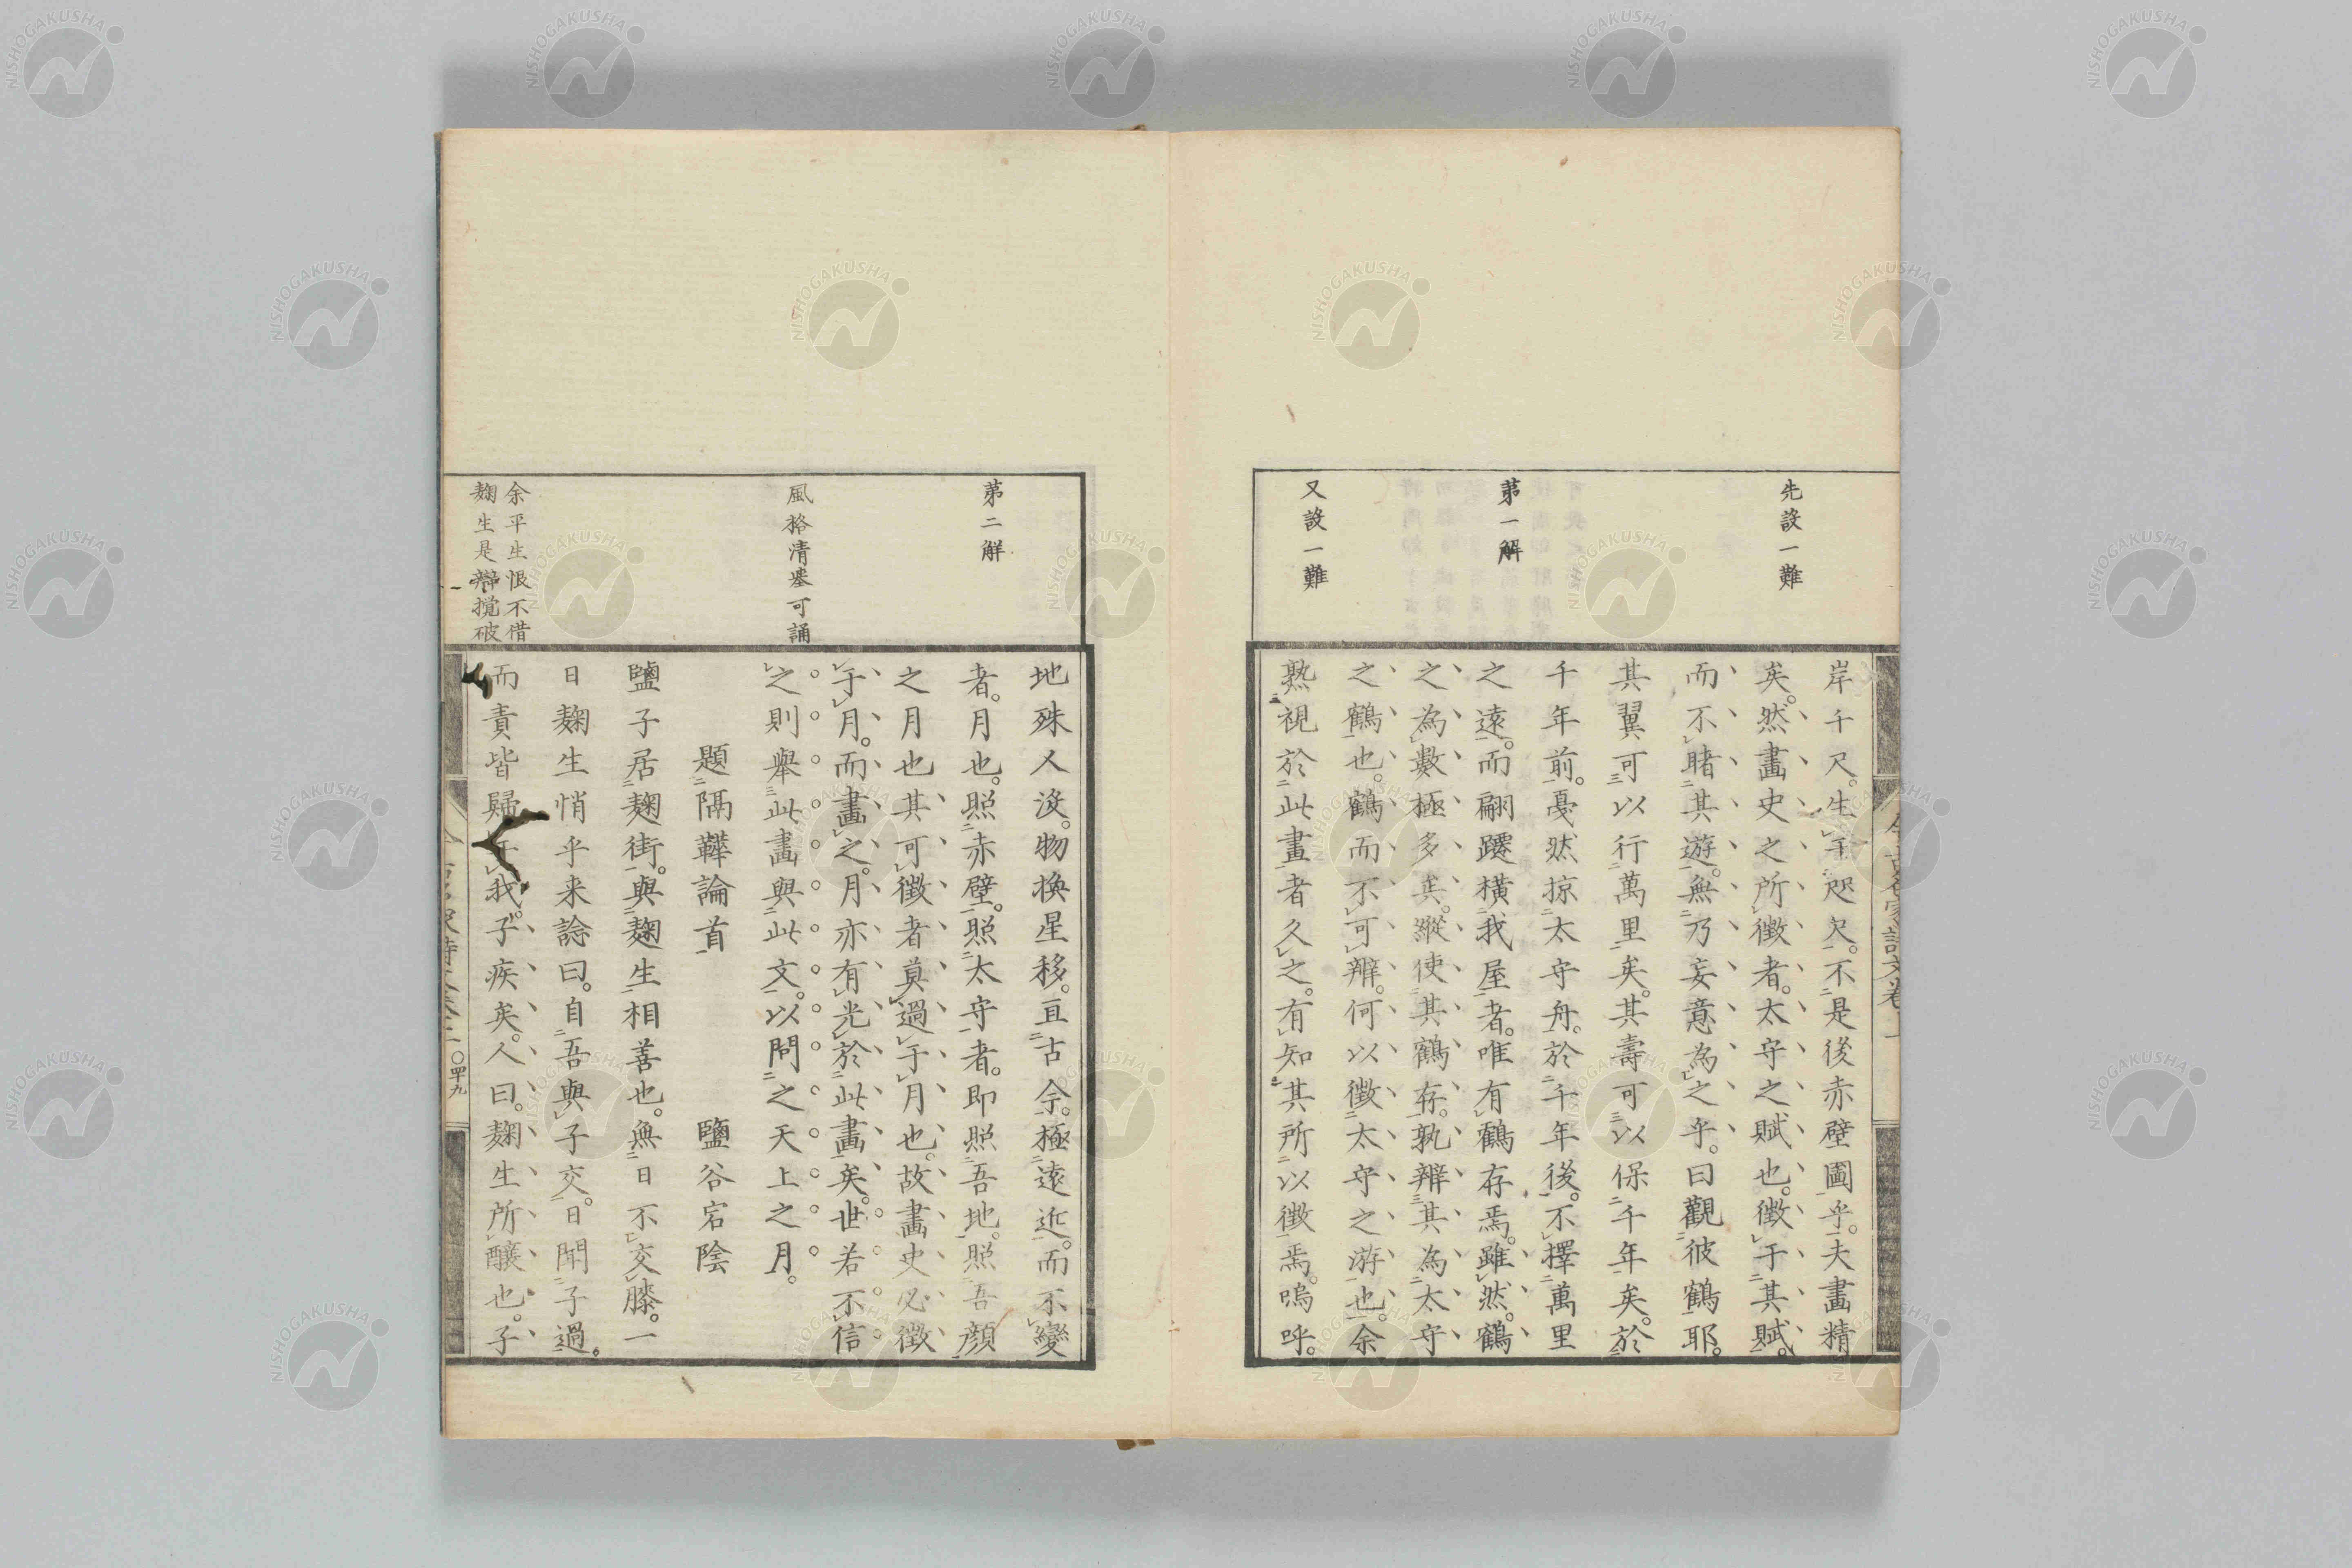 先設一難
第一解
又設一難
岸千尺。生于咫尺。不是後赤壁圖乎。夫畫精
矣。然畫史之所徴者。太守之賦也。徴于其賦。
而不睹其遊。無乃妄意為之乎。曰觀彼鶴耶。
其翼可以行萬里矣。其壽可以保千年矣。於
千年前。戞然掠太守舟。於千年後。不擇萬里
之遠。而翩躚横我屋者。唯有鶴存焉。雖然。鶴
之為數極多矣。縱使其鶴存。孰辨其為太守
之鶴也。鶴而不可辨。何以徴太守之游也。余
熟視於此畫者久之。有知其所以徴焉。嗚呼。
第二解
風格清𡏖可誦
余平生恨不借
麹生是辯攪破
地殊人没。物換星移。亘古今。極遠近。而不變
者。月也。照赤壁。照太守者。即照吾地。照吾顔
之月也其可徴者莫過于月也。故畫史必徴
于月。而畫之。月亦有光於此畫矣。世若不信
之則舉此畫與此文。以問之天上之月。
題隔鞾論首 鹽谷宕陰
鹽子居麹街。與麹生相善也。無日不交膝。一
日麹生悄乎来諗曰。自吾與子交。日聞子過。
而責皆歸于我。子疾矣。人曰。麹生所釀也。子
四九